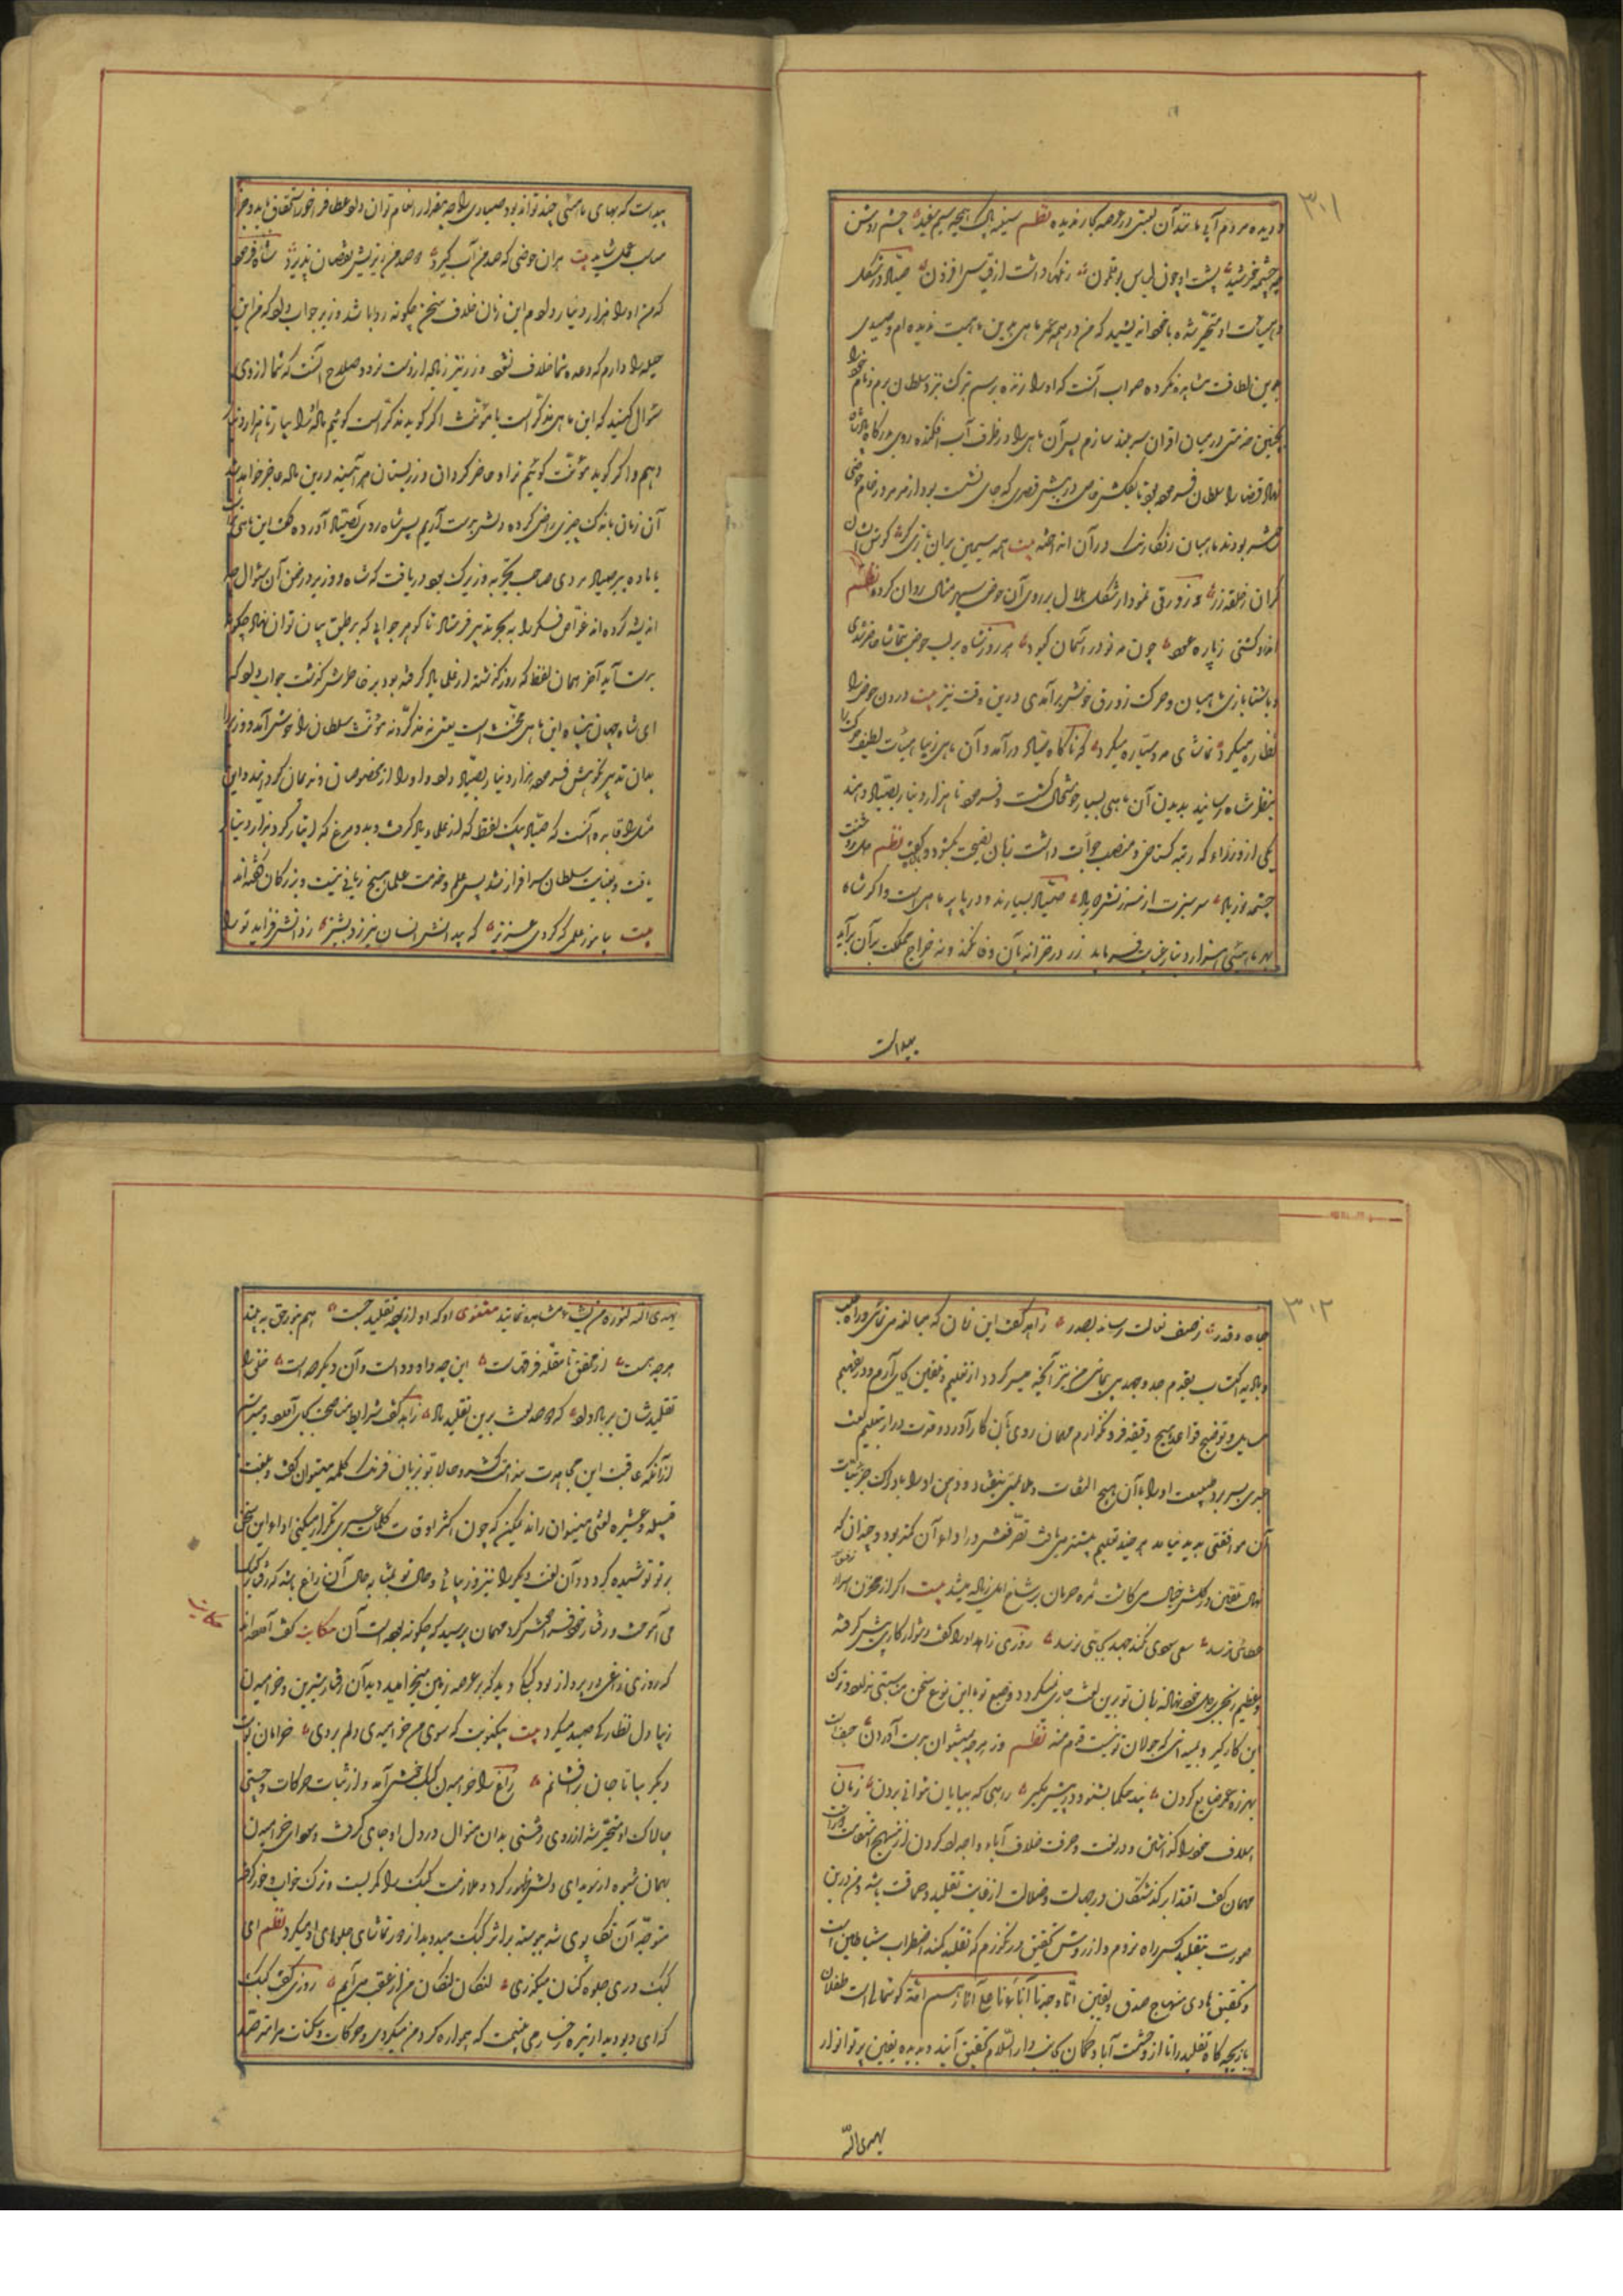 ۳۰۱
و دیده مردم آبی مانند آن لعبتی در عرصه بحار ندیده نظم سینه پاک همچو سیم سفید چشم روشن
چو چشمه خورشید پشت او چون لباس بوقلمون رنگها داشت از قیاس افزون صیاد در شکل
و هیبات او متحیر شده با خود اندیشید که من در همه عمر ماهی بدین هیات ندیده ام و صیدی
بدین لطافت مشاهده نکرده صواب آنست که او را زنده برسم ترک نزد سلطان برم و نام خود را
بچنین خدمتی در میان اقران سربلند سازم پس آن ماهی را در ظرف آب افکنده روی بدرگاه پادشاه
نهاد قضا را سلطان فرموده بود تا در پیش قصری که جای نشست بود از مرمر و رخام حوضی
بودند ماهیان رنگارنگ در آن انداخته بیت همه سیمین بران بازی گوش
گران از حلقه زر و زورقی نمودار شکل هلال بر روی آن حوض سپهر مثال روان کرده نظم
کشتی ز پاره عود چون مه نو در آسمان کبود هر روز شاه بر لب حوض بتماشا حاضر شدی
و باشنا بازی ماهیان و حرکت زورق خوش برآمدی درین وقت نیز بیت درون حوض را
نظاره میکرد تماشای مه و سیاره میکرد که ناگاه صیاد درآمد و آن ماهی زیبا هیئات لطیف حرکت را
بنظر شاه رسانید بدیدن آن ماهی بسیار خوشحال گشت و فرمود تا هزار دینار بصیاد دهند
یکی از وزراء که رتبه گستاخی و منصب جرأت داشت زبان نصیحت بگشود و گفت نظم
چشمه نور باد سر سبزت از سرزنش دور باد صیاد بسیارند و در دریا پر ماهی است و اگر شاه
بهر ماهئی هزار دینار رعایت فرماید زر در خزانه بآن وفا نکند و نه خراج مملکت بر آن برآید
پیداست
پیداست که بهای ماهئی چند تواند بود صیادی را چه مقدار انعام توان داد عطا فراخور استحقاق باید و جزا
مناسب عمل شاید بیت بر آن حوضی که صد من آب گیرد دو صد من ریزیش نقصان پذیرد شاه فرمود
که من او را هزار دینار دادم این زمان خلاف سخن چگونه روا باشد وزیر جواب داد که من این
حیله را دارم که وعده شما خلاف نشود و زر نیز زیاده از دست نرود صلاح آنست که شما از وی
سئوال کنید که این ماهی مذکر است یا مؤنث اگر گوید مذکر است گوئیم ماده اش را بیار تا هزار دینار
دهیم و اگر گوید مؤنث گوئیم نر او حاضر گردان و زر بستان هر آئینه درین ماده عاجز خواهد شد
آن زمان باندک چیزی راضی کرده دلش بدست آریم پس شاه روی بصیاد آورده گفت این ماهی نر است
یا ماده پیر صیاد مردی صاحب تجربه و زیرک بود دریافت که شاه و وزیر در ضمن آن سئوال چه
اندیشه کرده اند غواص فکر را به بحر تدبیر فرستاد تا گوهر جوابی که بر طبق بیان توان نهاد چگونه
بدست آید آخر همان لفظ که روز گذشته از عالمی یاد گرفته بود بر خاطرش گذشت جواب داد که
ای شاه جهان پناه این ماهی مخنث است یعنی نه مذکر و نه مؤنث سلطان را خوش آمد و وزیر را
بدان تدبیر نکوهش فرمود هزار دینار بصیاد داد و او را از مخصوصان و ندیمان گردانید و این
مثل را فایده آنست که صیاد بیک لفظ که از علما یاد گرفت و بدو مرغ که ایثار کرد هزار دینار
یافت و بعنایت سلطان سرافراز شد پس علم و خدمت علما هیچ زیانی نیست و بزرگان گفته اند
بیت بیاموز علمی که گردی عزیز که بیدانش انسان نیرزد بشیز ز دانش فزاید تو را
۳۰۲
جاه و قدر ز صف نعالت رساند بصدر زاهد گفت این زمان که مبالغه می نمائی و راه طلب
و بادیه اکتساب بقدم جد و جهد می پیمائی من نیز آنچه میسر گردد از تعلیم و تلقین بجای آرم و در تفهیم
مسایل و توضیح قواعد هیچ دقیقه فرو نگذارم مهمان روی بآن کار آورد و مدت دراز بتعلیم لغت
عبری بسر برد طبیعت او را با آن هیچ التفات و ملایمتی نیفتاد و ذهن او را بادراک جزئیات
آن موافقتی پدید نیامد هر چند تعلیم بیشتر می یافت تصرفش در ادای آن کمتر بود و چندان که
نهال تلقین در گلشن خیال می کاشت ثمره حرمان بر شاخ امل زیاده میشد بیت اگر از مخزن اسرار
عطائی نرسد سعی سودی نکند جهد بجائی نرسد روزی زاهد او را گفت دشوار کاری پیش گرفته
و عظیم رنجی بر دل خود نهاده زبان تو برین لغت جاری نمیگردد و طبع تو با این نوع سخن مناسبتی ندارد ترک
این کار گیر و بمیدانی که جولان تو نیست قدم منه نظم وز هر چه نمیتوان بدست آوردن حیفست
بهرزه عمر ضایع کردن پند حکما بشنو و در پیش مگیر راهی که بپایان نتوانی بردن زبان
اسلاف خود را گذاشتن و در لغت و حرفت خلاف آباء و اجداد کردن از منهج استقامت دور است
مهمان گفت اقتدا بر گذشتگان در جهالت و ضلالت از غایت تقلید و حماقت باشد و من درین
صورت بتقلید کسی راه نروم و از روش تحقیق در نگذرم که تقلید کمند اضطراب شیاطین است
و تحقیق هادی منهاج صدق و یقین انا وجدنا آبائنا علی امة گوشمالی است طفلان
بازیچه گاه تقلید را تا از وحشت آباد گمان بجانب دار السلام تحقیق آیند و بدیده یقین پرتو انوار
یهدی الله
یهدی الله لنوره من یشاء مشاهده نمایند مثنوی او که او از چه تقلید جست هم بنور حق به بیند
هرچه هست از محقق تا مقلد فرقهاست این چو داود است و آن دیگر صداست خلق را
تقلیدشان بر باد داد که دو صد لعنت برین تقلید باد زاهد گفت شرایط نصیحت بجای آمد و میترسم
از آنکه عاقبت این مجاهدت بندامت کشد و حالا تو بزبان فرنگ کلمه میتوان گفت و بلغت
قبیله و عشیره لغتی میتوان راند یمکن که چون اکثر اوقات کلمات عبری تکرار میکنی ادای این سخن
بر تو پوشیده گردد و آن لغت دیگر را نیز ورزیائی و حال تو بمثابه حال آن زاغ باشد که رفتار کبک
می آموخت و رفتار خود فراموش کرد مهمان پرسید که چگونه بوده است آن حکایت گفت آورده اند
حکایت
که روزی زاغی در پرواز بود کبکی دید که بر عرصه زمین میخرامید دید آن رفتار شیرین و خرامیدن
زیبا دل نظارگی صید میکرد بیت بیکنوبت که سوی من خرامیدی دلم بردی خرامان نوبت
دیگر بیا تا جان برافشانم زاغ را خرامیدن کبک خوش آمد و از ثبات حرکات و چستی و
چالاکی او متحیر شد آرزوی رفتنی بدان منوال در دل او جای گرفت و سودای خرامیدن
بهمان شیوه از سویدای دلش ظهور کرد و ملازمت کبک را کمر بست و ترک خواب و خور کرد
متوجه آن تکاپوی شد پیوسته بر اثر کبک میدوید از دور تماشای جلوه های او میکرد نظم ای
کبک دری جلوه کنان میگذری لنگان لنگان من از عقب می آیم روزی گفت کبک
که ای دیو دیدار تیره رخسار می بینمت که همواره گرد من میگردی و حرکات و سکنات مرا مترصد